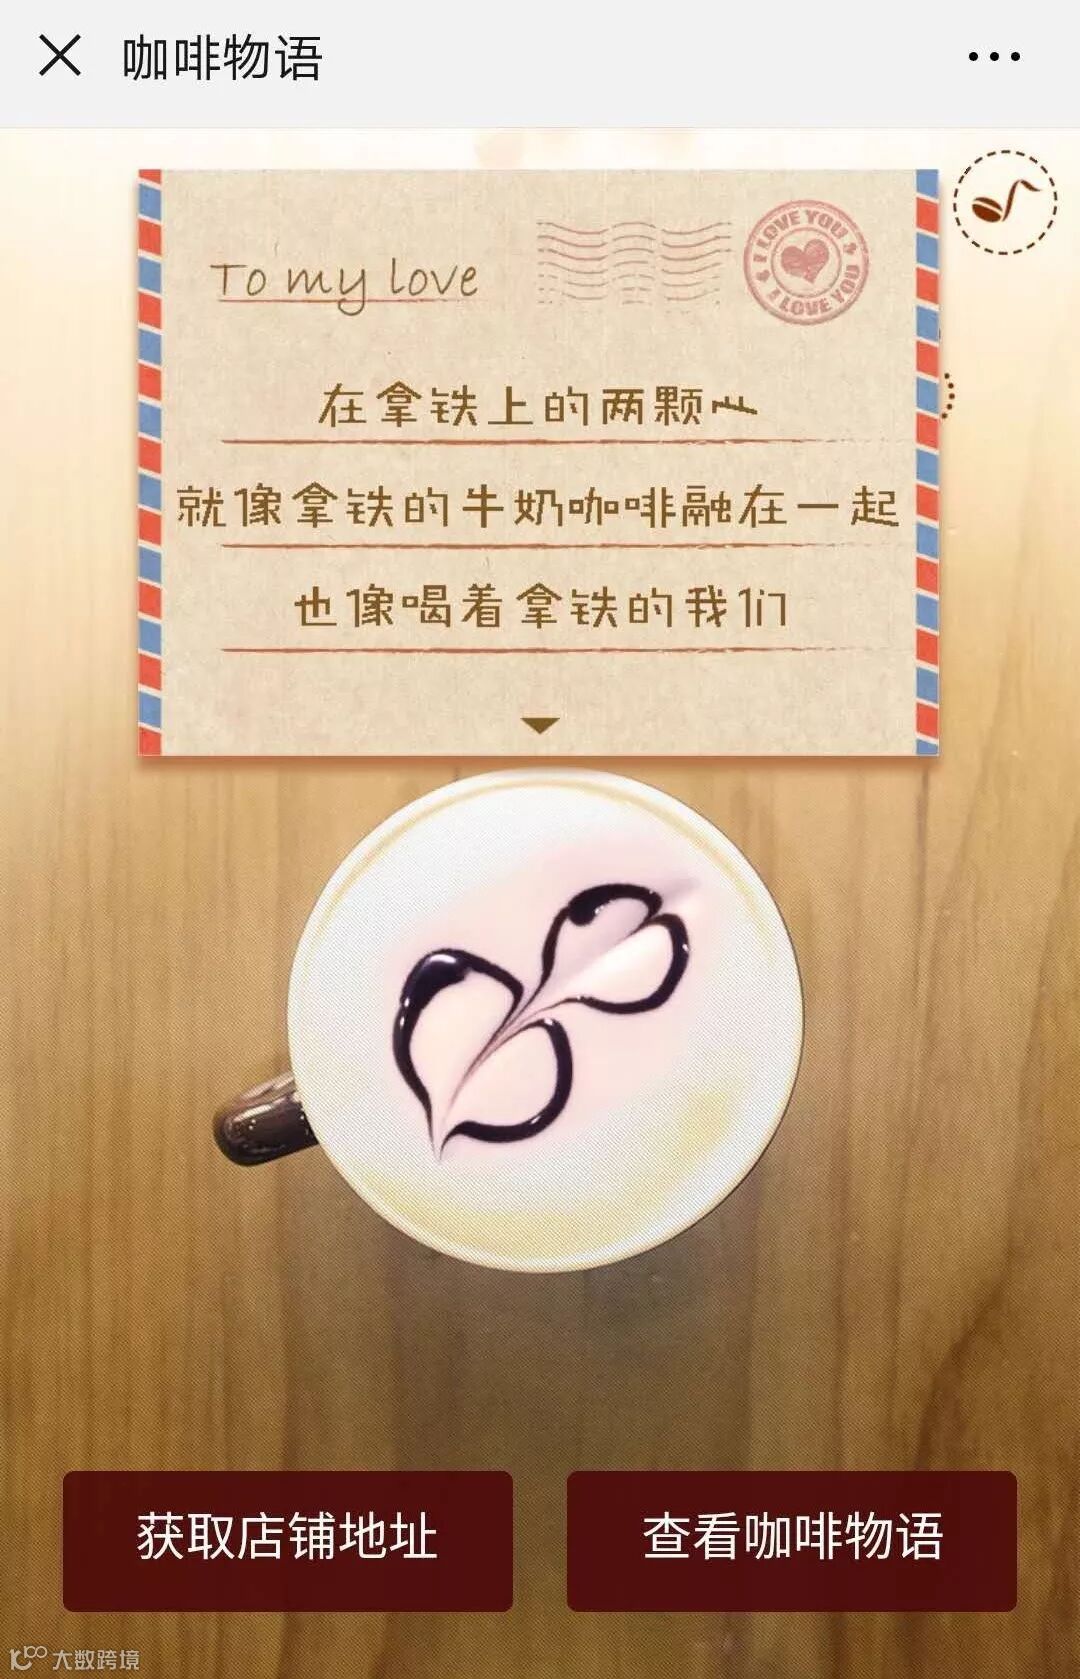 咖啡物语
To my love
I LOVE YOU
I LOVE YOU
在拿铁上的两颗
就像拿铁的牛奶咖啡融在一起
也像喝着拿铁的我们
获取店铺地址
查看咖啡物语
大数跨境